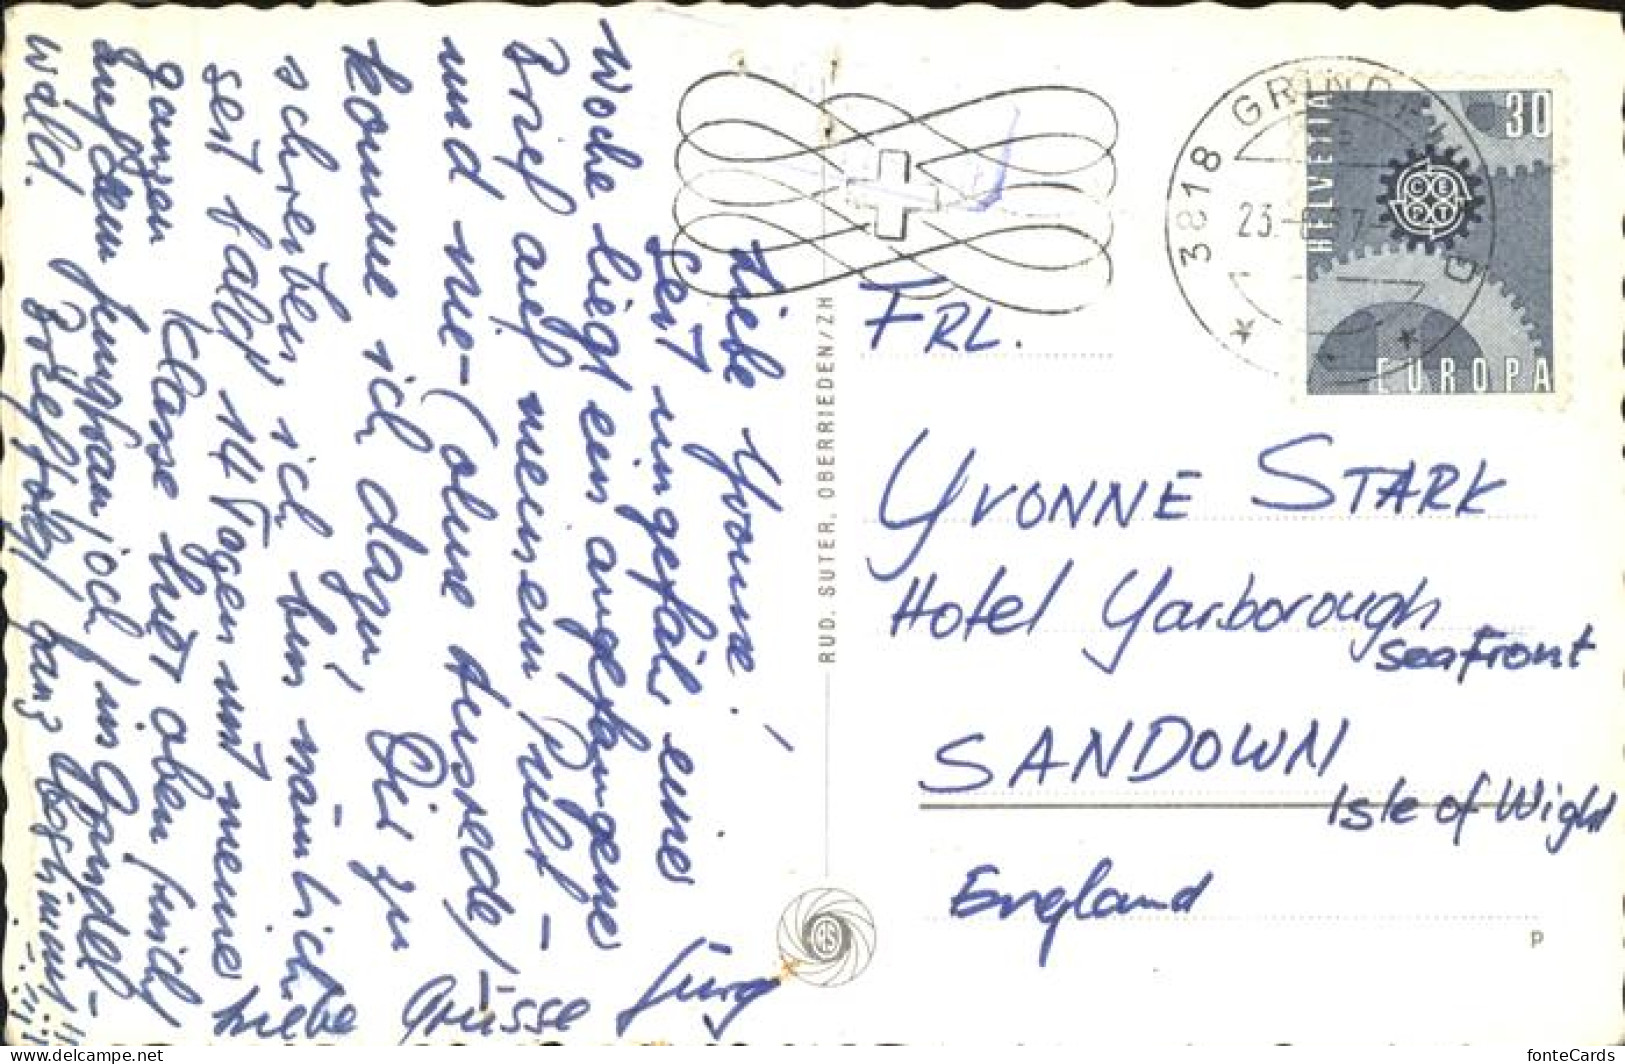 Liebe Yvonne!
Seit ungefähr einer
Woche liegt ein angefangene
Brief auf meinem Pult –
und nie – (ohne Ausrede)
komme ich dazu, Dir zu
schreiben, ich bin nämlich
seit bald 14 Tagen mit meiner
ganzen Klasse hier oben
auf dem Jungfraujoch / in Grindel-
wald. Brief folgt ganz bestimmt!!
Liebe Grüsse Jürg
RUD. SUTER, OBERRIEDEN/ZH
3818 GRIND
23.
HELVETIA
30
CEPT
EUROPA
FRL.
YVONNE STARK
Hotel Yarborough
seaFront
SANDOWN
Isle of Wight
England
P
fonteCards